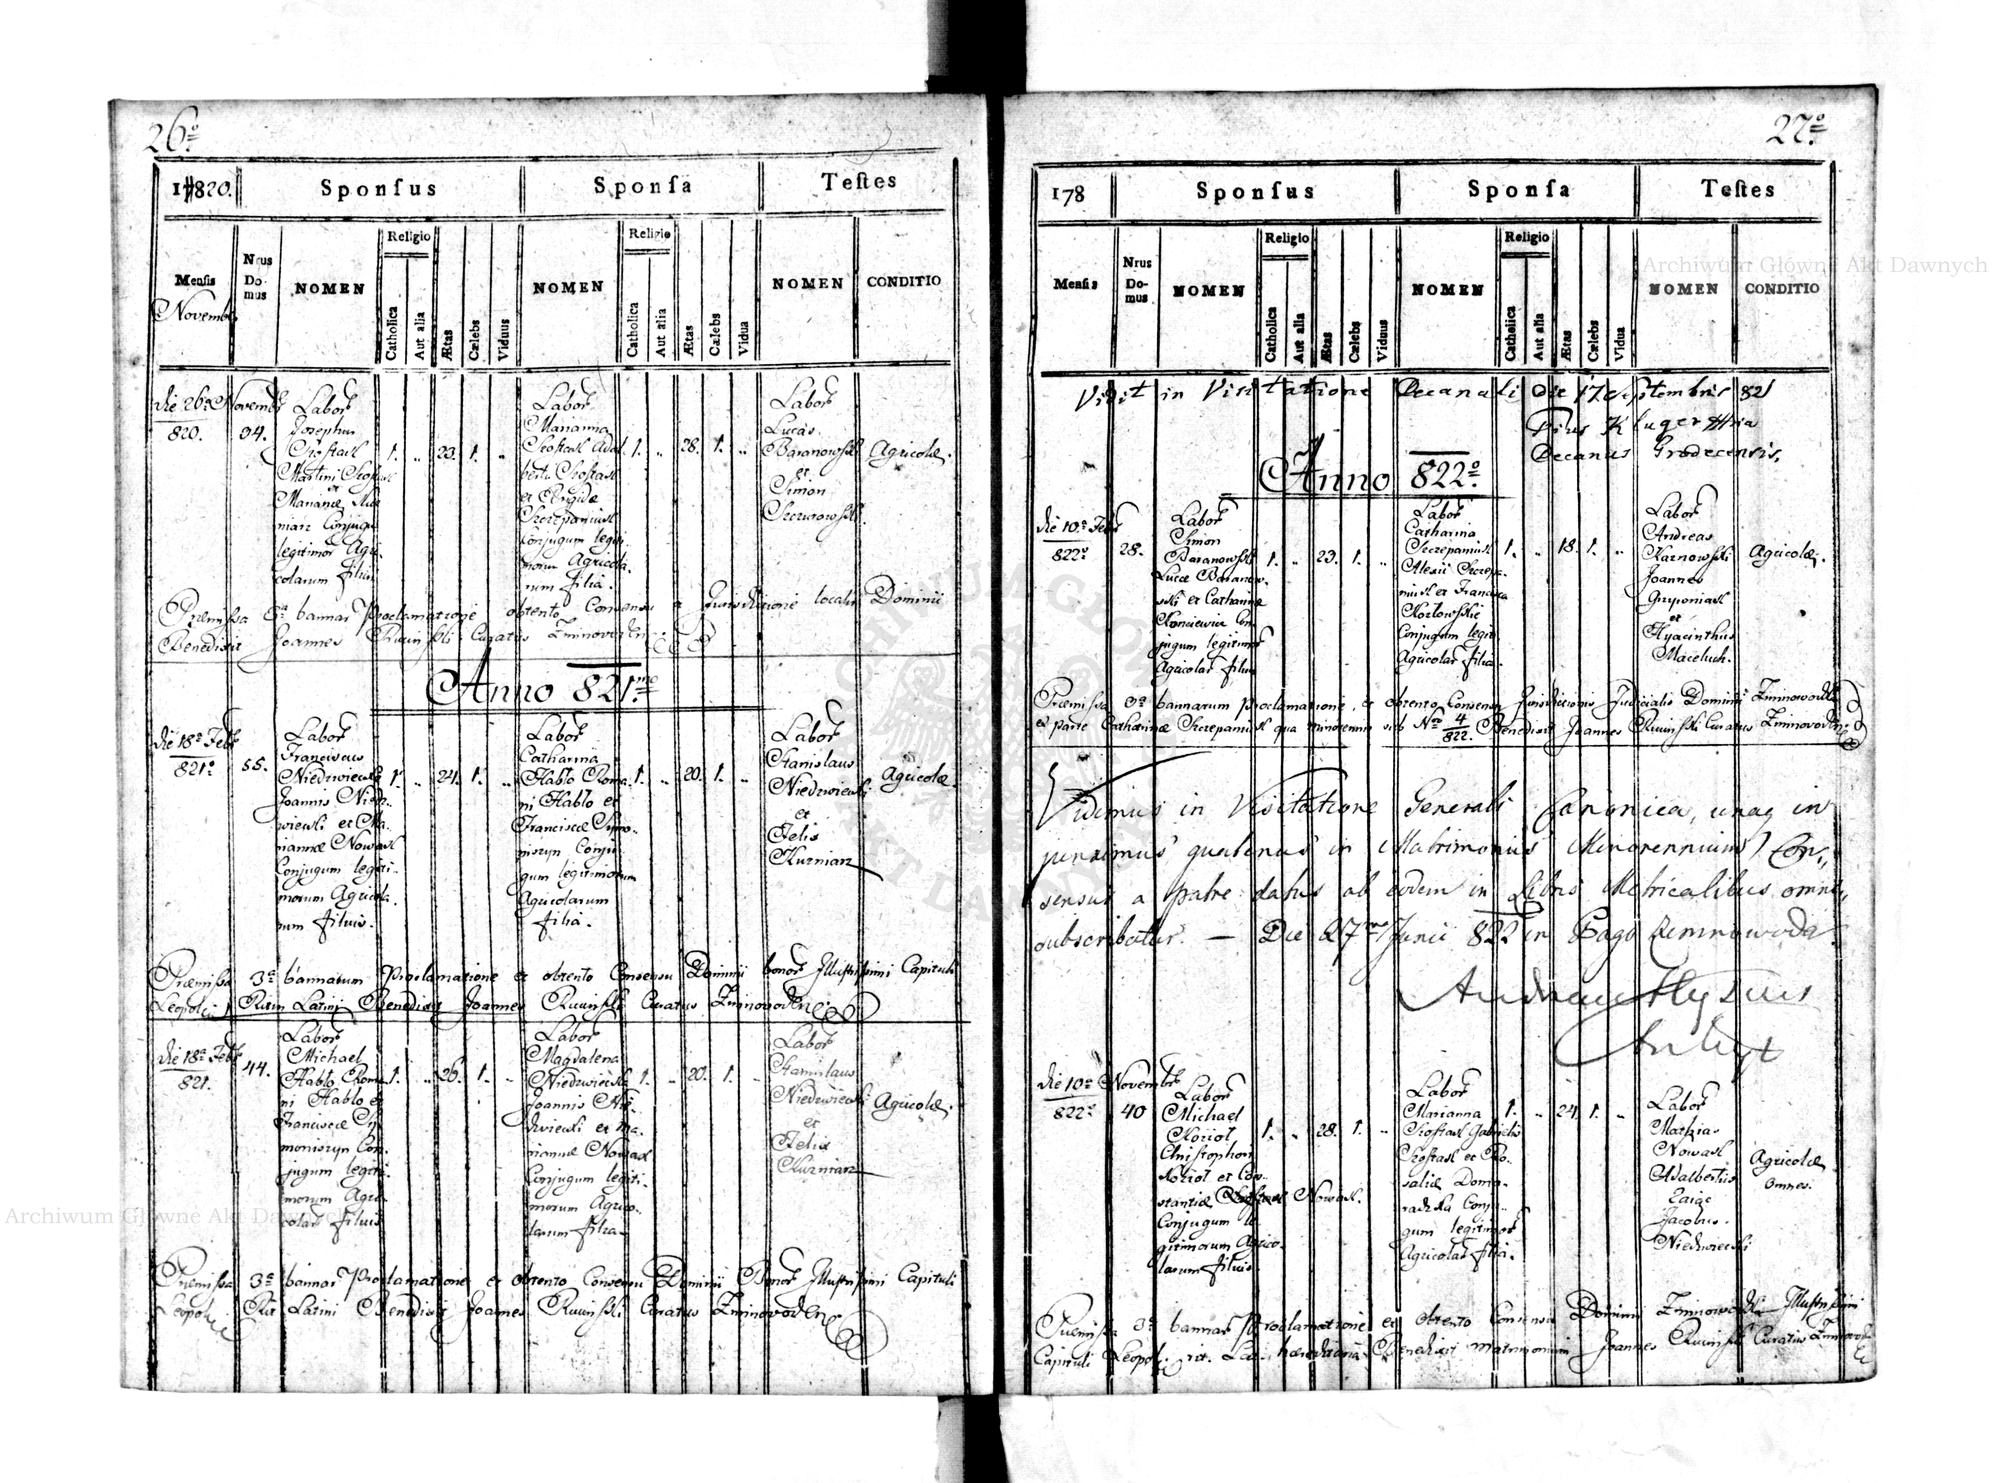 26º
17820.
Sponsus
Sponsa
Testes
Mensis
Novembr
Nrus Domus
NOMEN
Religio
Catholica
Aut alia
Ætas
Cælebs
Viduus
NOMEN
Religio
Catholica
Aut alia
Ætas
Cælebs
Vidua
NOMEN
CONDITIO
die 26a Novembr
820.
94.
Labor
Josephus
Martini
et
Mariannæ
Conjugu
legitimor Agri-
colarum filius
1. „ 23. 1. „
Labor
Marianna
et
Szczepaniuk
Conjugum legiti-
morum Agricola-
rum filia.
1. „ 28. 1. „
Labor
Lucas
Baranowski
et
Simon
Agricolæ.
Præmissa bannar Proclamatione obtento Consensu a Jurisdictione localis Dominii
Benedixit Joannes Curatus
Anno 821mo
die 18a Febr
821º
55.
Labor
Franciscus
Niedzwiecki
Joannis Niedz-
wiecki et Ma-
riannæ Nowak
Conjugum legiti-
morum Agricola-
rum filius.
1. „ 24. 1. „
Labor
Catharina
Hablo Roma-
ni Hablo et
Franciscæ Symo-
niszyn Conju-
gum legitimorum
Agricolarum
filia.
1. „ 20. 1. „
Labor
Stanislaus
Niedzwiecki
et
Felix
Kuzniarz
Agricolæ.
Præmissa 3a bannarum Proclamatione et obtento Consensu Dominii bonor Illustrissimi Capituli
Leopol: Ritus Latini Benedixit Joannes Curatus
die 18a Febr
821.
44.
Labor
Michael
Hablo Roma-
ni Hablo et
Franciscæ Sy-
moniszyn Con-
jugum legiti-
morum Agri-
colar filius
1. „ 26. 1. „
Labor
Magdalena
Niedzwiecka
Joannis Nie-
dzwiecki et Ma-
riannæ Nowak
Conjugum legiti-
morum Agrico-
larum filia.
1. „ 20. 1. „
Labor
Stanislaus
Niedzwiecki
et
Felix
Kuzniarz
Agricolæ.
Præmissa 3a bannar Proclamatione et obtento Consensu Dominii Bonor Illustrissimi Capituli
Leopol: Rit Latini Benedixit Joannes Curatus
27º
178
Sponsus
Sponsa
Testes
Mensis
Nrus Domus
NOMEN
Religio
Catholica
Aut alia
Ætas
Cælebs
Viduus
NOMEN
Religio
Catholica
Aut alia
Ætas
Cælebs
Vidua
NOMEN
CONDITIO
Vidit in Visitatione Decanali die 17 Septembris 821
Pius Kluger
Decanus Grodecensis.
Anno 822º
die 10a Febr
822º
28.
Labor
Simon
Baranowski
Lucæ Baranow-
ski et Catharinæ
Con-
jugum legitimor
Agricolar filius
1. „ 23. 1. „
Labor
Catharina
Szczepaniuk
Alexii Szczepa-
niuk et Francisca
Kozłowskie
Conjugum legit
Agricolar filia.
1. „ 18. 1. „
Labor
Andreas
Karnowski
Joannes
et
Hyacinthus
Maceluch.
Agricolæ.
Præmissa 3a bannarum Proclamatione, et obtento Consensu Jurisdictionis Judicialis Dominii
ex parte Catharinæ Szczepaniuk qua minorennis sub Nro 4/822. Benedixit Joannes Curatus
Vidimus in Visitatione Generali Canonica, unaq in
junximus quatenus in Matrimoniis Minorennium Con„
sensus a patre datus ab eodem in Libris Metricalibus
subscribatur. — Die 27ma Junii 822 in Pago Zimnowoda
die 10a Novembr
822º
40
Labor
Michael
Kozioł
Christophori
Kozioł et Con-
stantiæ Nowak.
Conjugum le-
gitimorum Agrico-
larum filius.
1. „ 28. 1. „
Labor
Marianna
Gabrielis
et Ro-
saliæ Doma-
radzka Conju-
gum legitimor
Agricolar filia.
1. „ 24. 1. „
Labor
Mathias
Nowak
Adalbertus
Jacobus
Niedzwiecki
Agricolæ
omnes.
Præmissa 3a bannar Proclamatione et obtento Consensu Dominii Illustrissimi
Capituli Leopol: rit. Lat. Benedixit matrimonium Joannes Curatus
Archiwum Główne Akt Dawnych
Archiwum Główne Akt Dawnych
ARCHIWUM GŁÓWNE AKT DAWNYCH